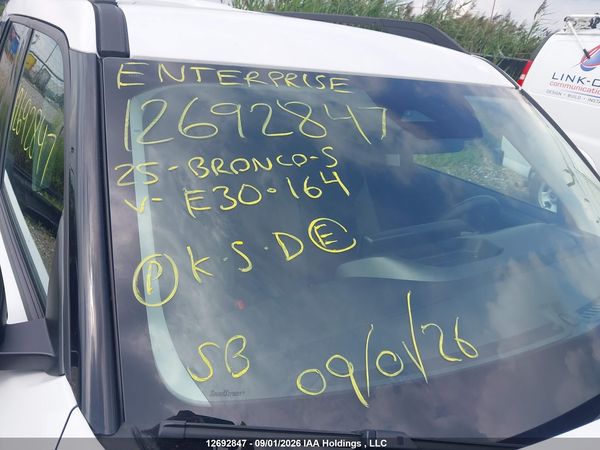 ENTERPRISE
12692847
25-BRONCO-S
V-E30-164
P K.S.D E
SB
09/01/26
12692847
LINK-D
communication
DESIGN · BUILD · INSTA
12692847 - 09/01/2026 IAA Holdings , LLC